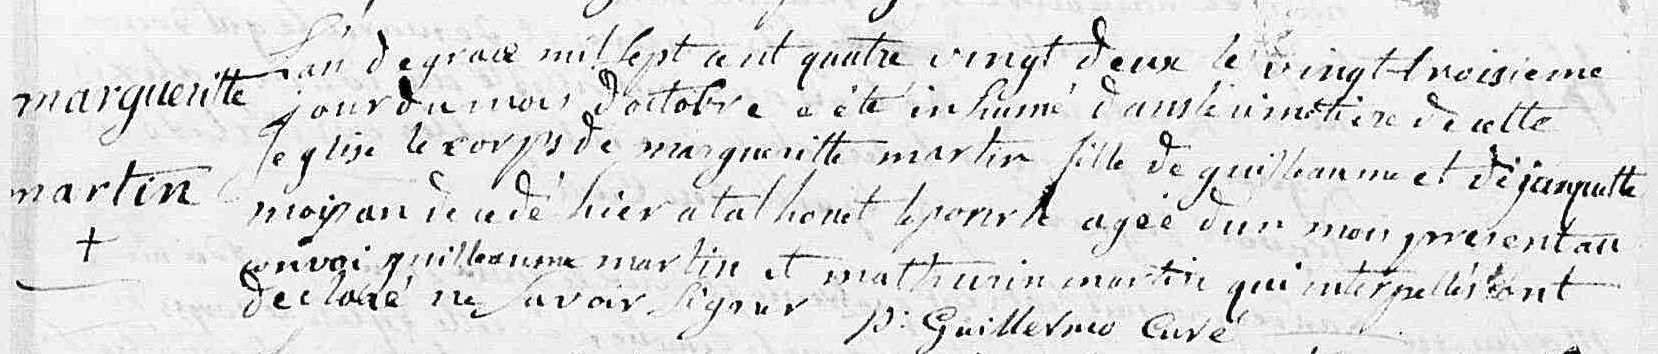 margueritte
martin
+
L'an de grace mil sept cent quatre vingt deux le vingt troisieme
jour du mois d'octobre a été inhumé dans le cimetiere de cette
eglise le corps de margueritte martin fille de guilleaume et de janquette
moisan decedé hier a talhouet agée d'un mois present au
convoi guilleaume martin et mathurin martin qui interpellés ont
declaré ne savoir signer P: Guillermo Curé